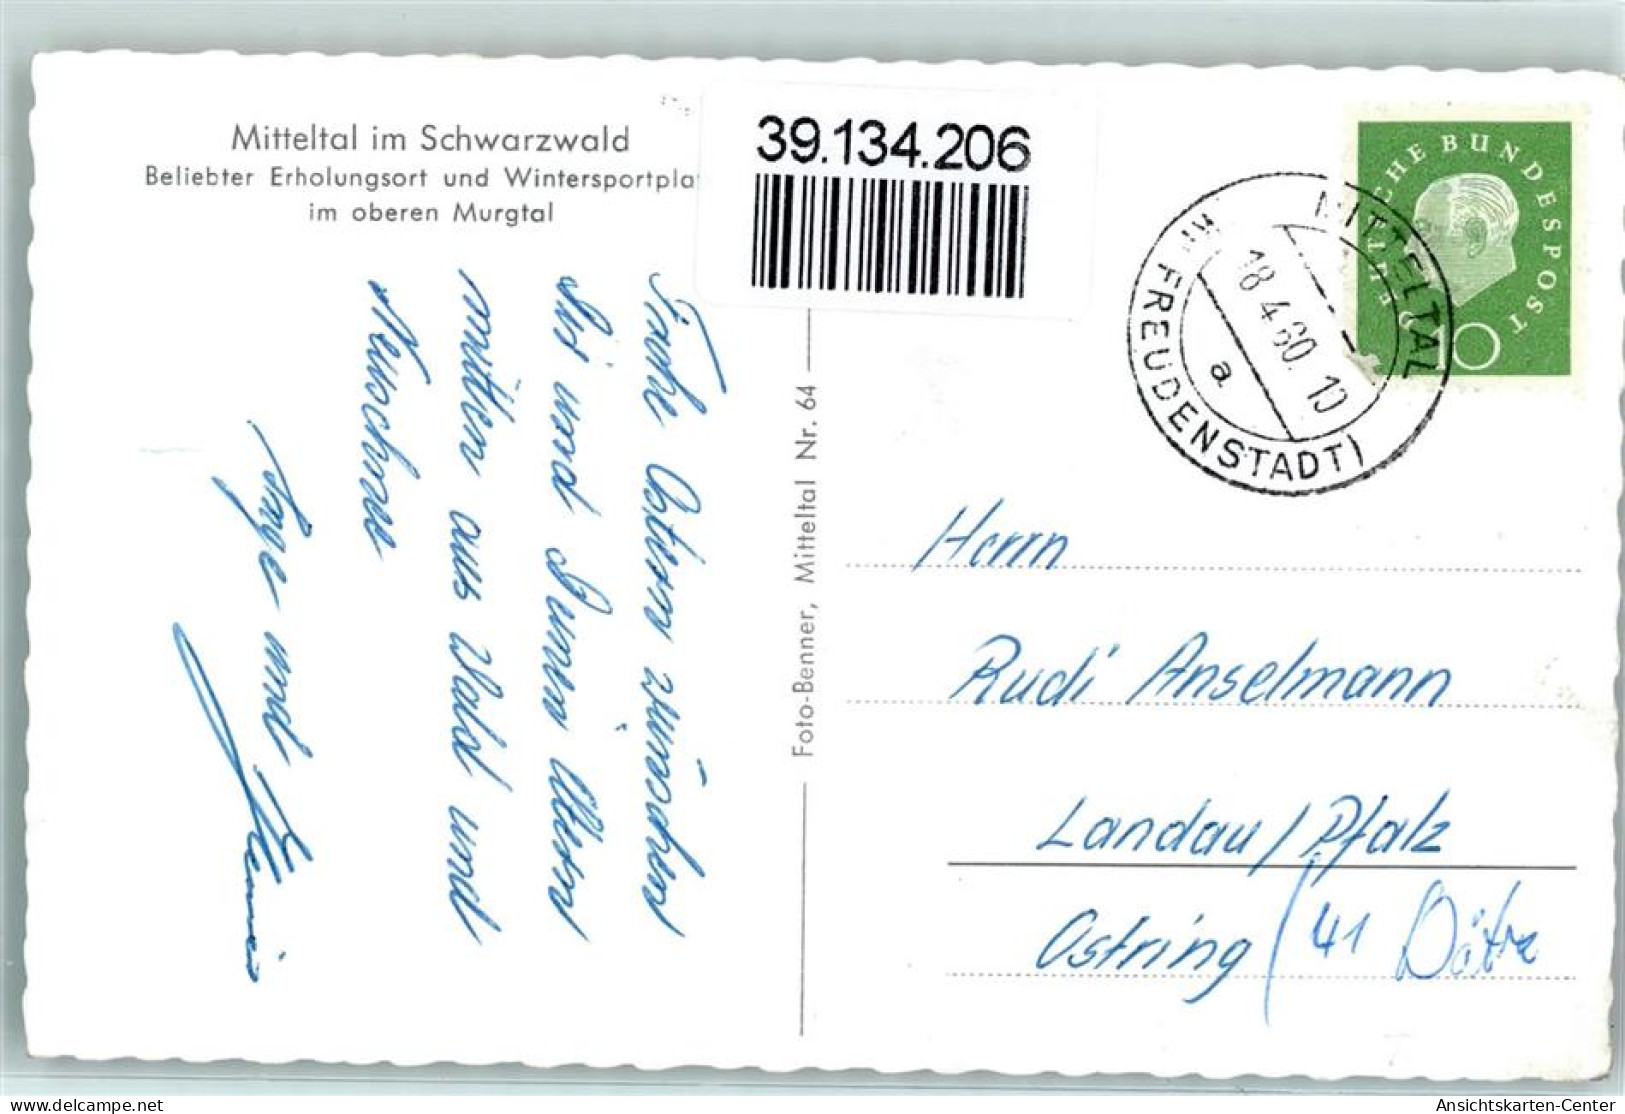 Mitteltal im Schwarzwald
Beliebter Erholungsort und Wintersportpla
im oberen Murgtal
39.134.206
DEUTSCHE BUNDESPOST
10
MITTELTAL
(FREUDENSTADT)
18.4.60.10
a
Frohe Ostern wünschen
Dir und Deinen Eltern
mitten aus Wald und
Neuschnee
Inge und
Foto-Benner, Mitteltal Nr. 64
Herrn
Rudi Anselmann
Landau/Pfalz
Ostring (41
delcampe.net
tat81
Ansichtskarten-Center